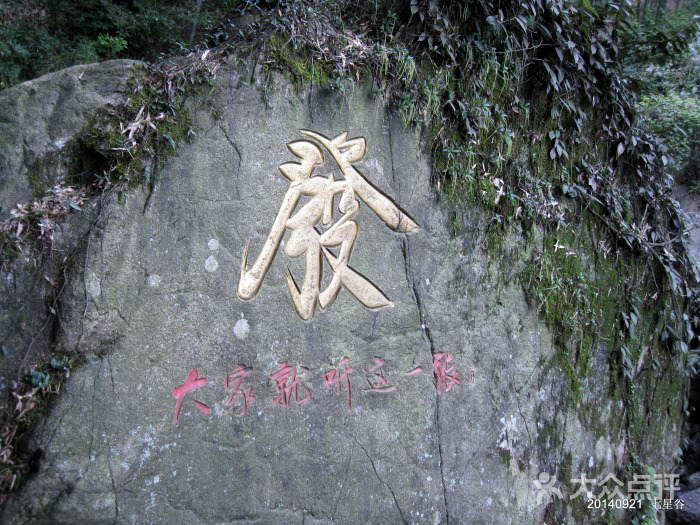 發
大家就听这一张
大众点评
20140921 七星谷